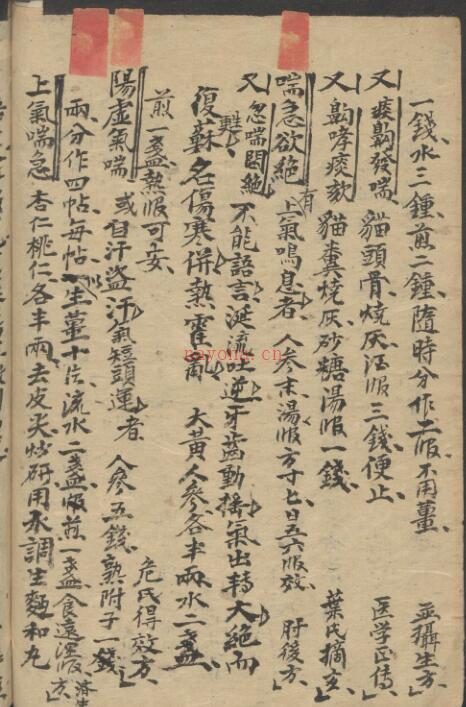 一錢、水三鍾、煎二鍾、隨時分作二服、不用薑、 並攝生方
又 痰齁發喘 貓頭骨燒灰、酒服三錢、便止 医学正傳
又 齁哮痰欬 貓糞燒灰、砂糖湯服一錢 葉氏摘玄
喘急欲絶 上氣鳴息者、人參末、湯服方寸匕、日五六服效 肘後方
又 忽喘悶絶 不能語言、涎流吐逆、牙齒動搖、氣出轉大、絶而
復甦 名傷寒併熱霍亂 大黃人參各半兩、水二盞
煎一盞熱服可安 危氏得效方
陽虛氣喘 或自汗盜汗、氣短頭運者 人參五錢、熟附子一錢
兩、分作四帖、每帖以生薑十片、流水二盞、煎一盞、食遠溫服 濟生方
上氣喘急 杏仁桃仁各半兩、去皮尖炒研、用水調生麵和丸
nayona.cn